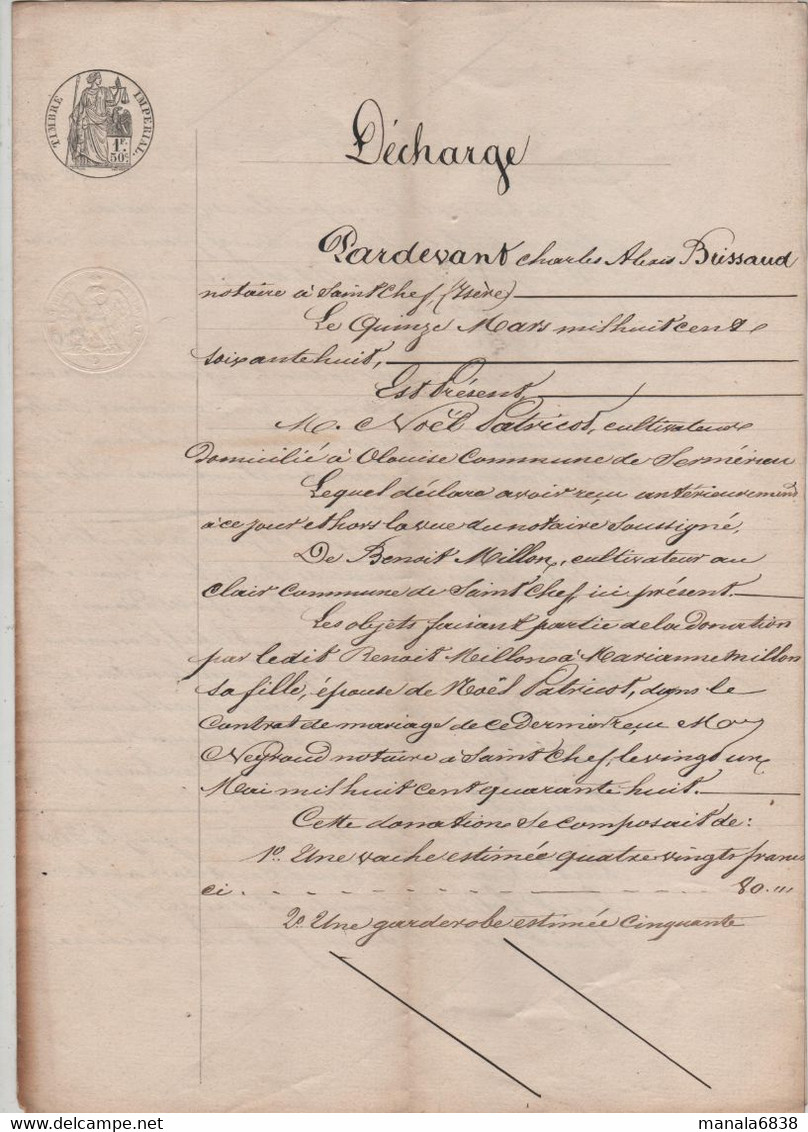 TIMBRE IMPERIAL
1F.
50c.
Décharge
Pardevant Charles Alexis Buissaud
notaire à Saint Chef (Isère)
Le Quinze Mars mil huit cent
soixante huit,
Est Présent,
M. Noël Patricot, cultivateur
domicilié à Olouise Commune de Sermérieu
Lequel déclare avoir reçu antérieurement
à ce jour et hors la vue du notaire soussigné,
De Benoit Millon, cultivateur au
clair commune de Saint Chef, ici présent.
Les objets faisant partie de la donation
par ledit Benoit Millon à Marianne Millon
sa fille, épouse de Noël Patricot, dans le
Contrat de mariage de ce dernier reçu Me
Neyraud notaire à Saint Chef, le vingt un
Mai mil huit cent quarante huit.
Cette donation se composait de:
1o. Une vache estimée quatre vingts francs
ci. 80.,,
2o. Une garderobe estimée Cinquante
manala6838